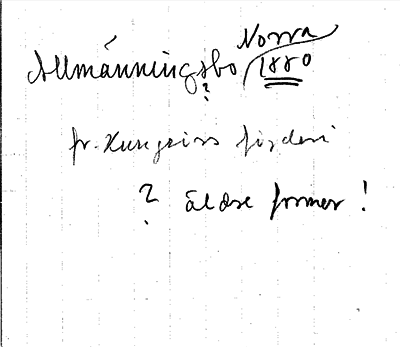 Allmänningsbo Norra
1880
?
fr.
? äldre former!